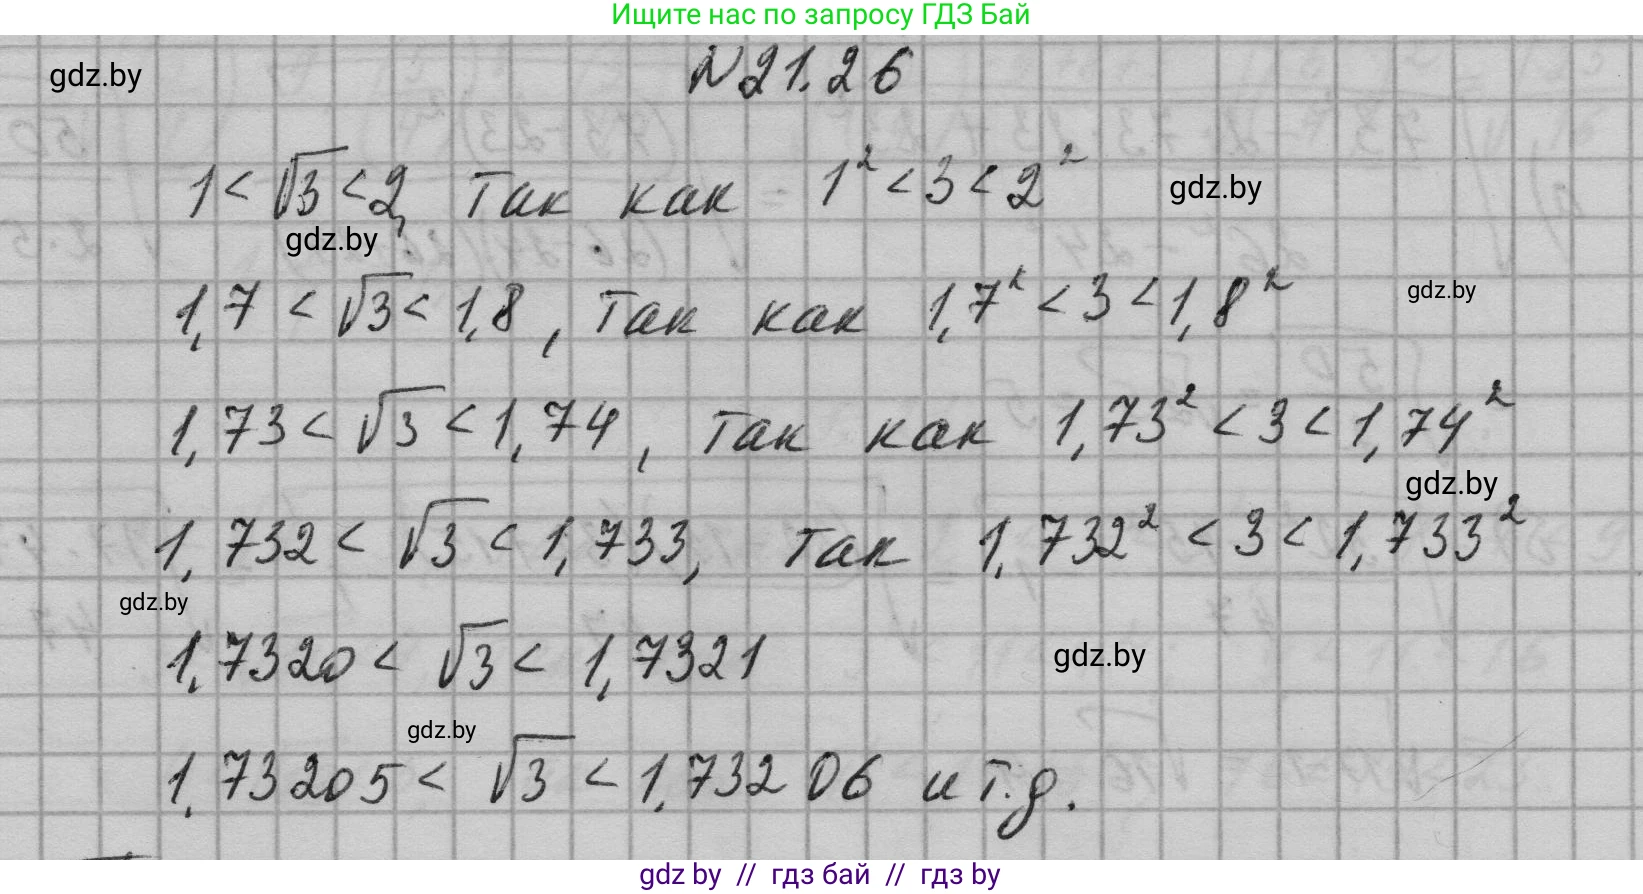 Ищите нас по запросу ГДЗ Бай
gdz.by
№21.26
1 < √3 < 2, так как 1² < 3 < 2²
gdz.by
gdz.by
1,7 < √3 < 1,8, так как 1,7² < 3 < 1,8²
gdz.by
1,73 < √3 < 1,74, так как 1,73² < 3 < 1,74²
gdz.by
1,732 < √3 < 1,733, так 1,732² < 3 < 1,733²
gdz.by
1,7320 < √3 < 1,7321
gdz.by
gdz.by
1,73205 < √3 < 1,73206 и т.д.
gdz by // гдз бай // гдз by